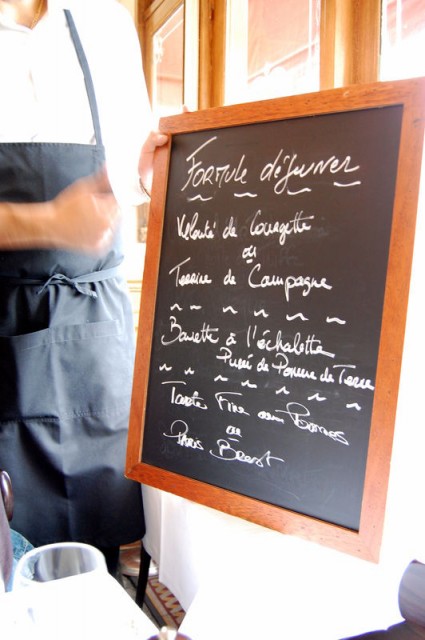 Formule déjeuner
Velouté de Courgette
ou
Terrine de Campagne
Bavette à l'échalotte
Purée de Pomme de Terre
Tarte Fine aux Pommes
ou
Paris Brest